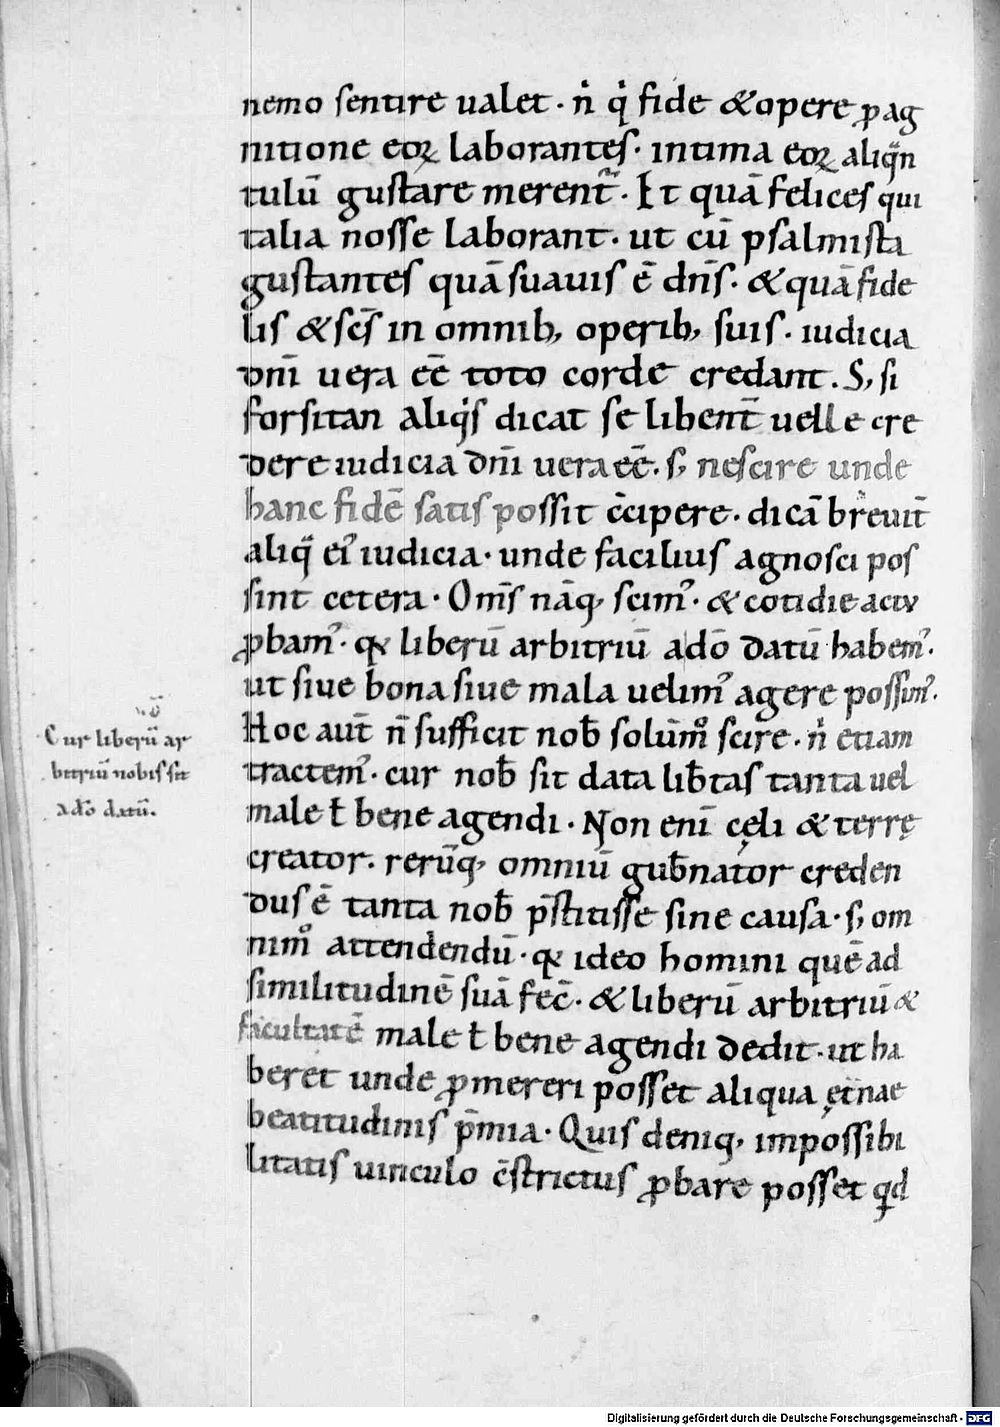 nemo sentire ualet · n̄ q̇ fide & opere ꝓ ag
nitione eoꝝ laborantes · intima eoꝝ aliqn̄
tulū gustare merent̄ · Et quā felices qui
talia nosse laborant · ut cū psalmista
gustantes quā suauis ē dn̄s · & quā fide
lis & scs̄ in omnib, operib, suis · iudicia
dn̄i uera eē toto corde credant . S, si
forsitan aliq̇s dicat se libent̄ uelle cre
dere iudicia dn̄i uera eē . s, nescire unde
hanc fidē satis possit c̄cipere · dicā breuit̄
aliq̄ ei᾽ iudicia · unde facilius agnosci pos
sint cetera · Om̄s nāq, scim᾽ · & cotidie actu
ꝓbam᾽ · qꝫ liberū arbitriū adō datū habem᾽ .
ut siue bona siue mala uelim᾽ agere possim᾽ .
Hoc aut̄ n̄ sufficit nob̄ solūmͦ scire · n̄ etiam
tractem᾽ · cur nob̄ sit data lib̄tas tanta uel
male ł bene agendi · Non eni̅ cęli & terrę
creator . rerūq, omniū gub̄nator creden
dus ē tanta nob̄ p̄stitisse sine causa · s, om
nimͦ attendendū · qꝫ ideo homini quē ad
similitudinē suā fec̄ · & liberū arbitriū &
facultatē male ł bene agendi dedit · ut ha
beret unde ꝓmereri posset aliqua ęt̄nae
beatitudinis p̄mia · Quis deniq, impossibi
litatis uinculo c̄strictus ꝓbare posset qd
Cur liberū ar
bitriū nobis sit
a dō datū.
Digitalisierung gefördert durch die Deutsche Forschungsgemeinschaft - DFG